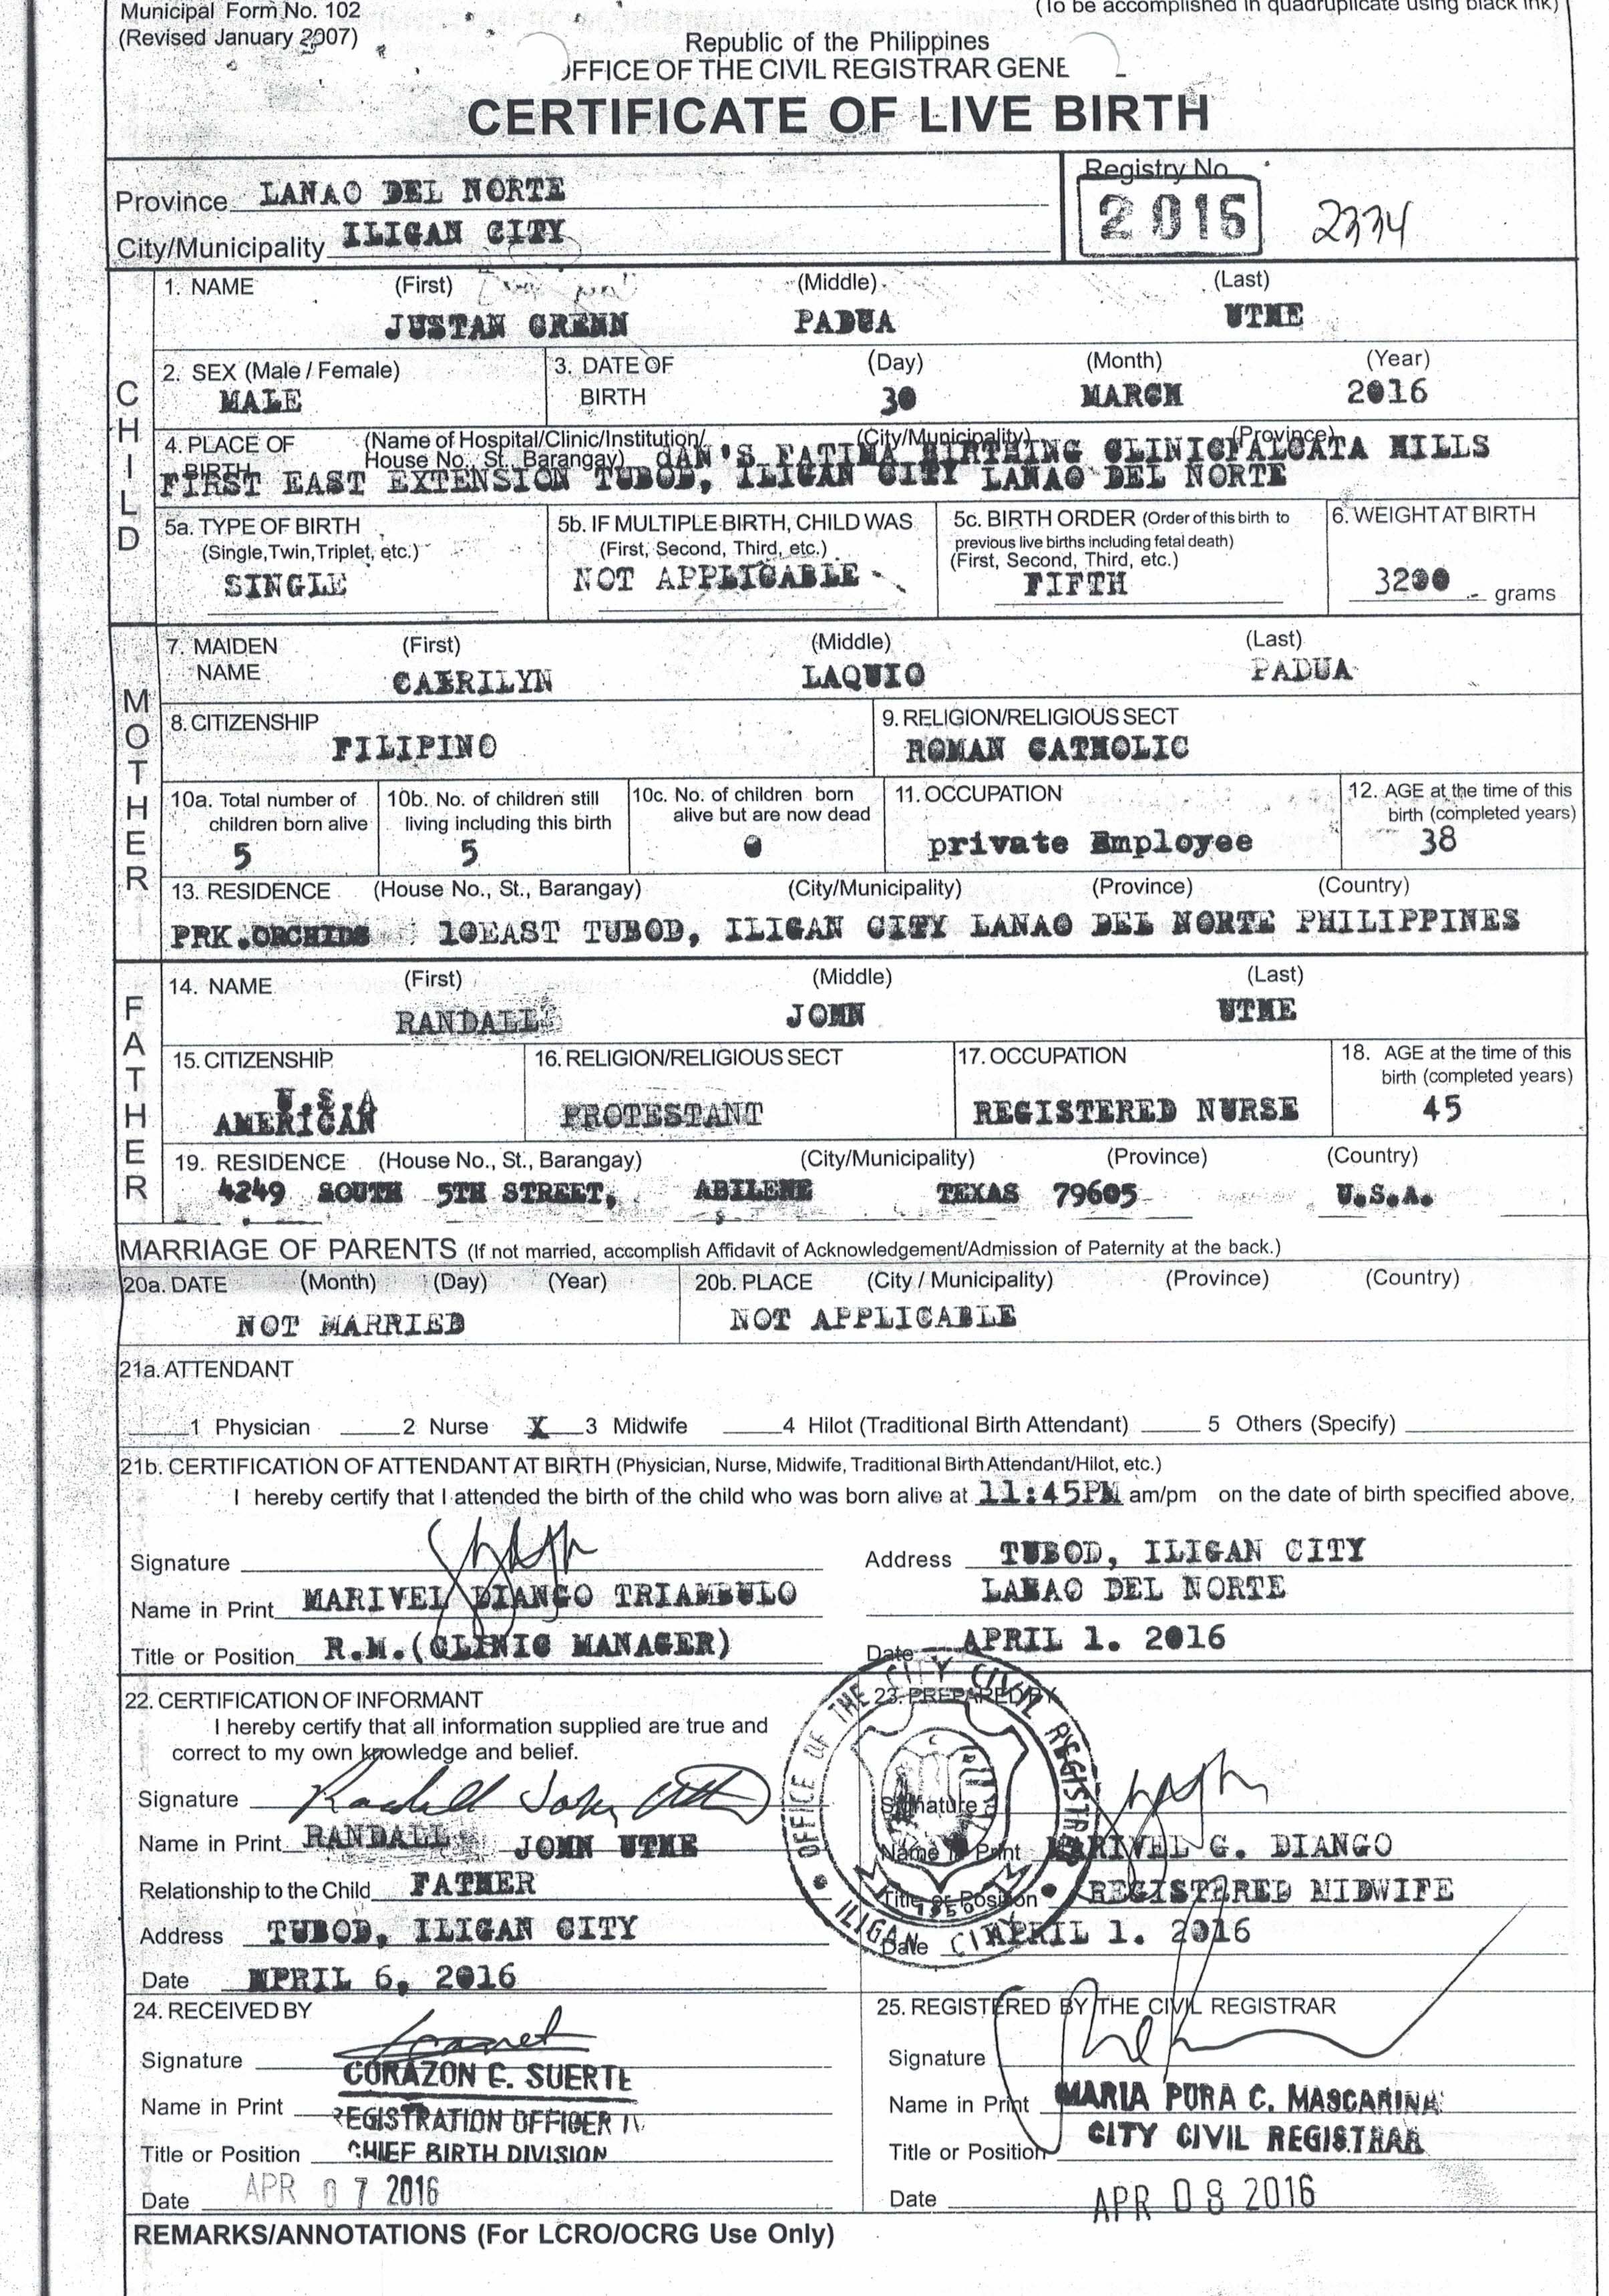 Municipal Form No. 102
(Revised January 2007)
(To be accomplished in quadruplicate using black ink)
Republic of the Philippines
OFFICE OF THE CIVIL REGISTRAR GENE
CERTIFICATE OF LIVE BIRTH
Province LANAO DEL NORTE
City/Municipality ILIGAN CITY
Registry No.
2016 2334
CHILD
1. NAME (First) (Middle) (Last)
JUSTAN GRENN PADUA UTHE
2. SEX (Male / Female) MALE
3. DATE OF BIRTH (Day) (Month) (Year)
30 MARCH 2016
4. PLACE OF BIRTH (Name of Hospital/Clinic/Institution/ House No., St., Barangay) (City/Municipality) (Province)
dAN'S FATIMA BIRTHING CLINICFALCATA HILLS
FIRST EAST EXTENSION TUBOD, ILIGAN CITY LANAO DEL NORTE
5a. TYPE OF BIRTH
(Single,Twin,Triplet, etc.)
SINGLE
5b. IF MULTIPLE BIRTH, CHILD WAS
(First, Second, Third, etc.)
NOT APPLICABLE
5c. BIRTH ORDER (Order of this birth to
previous live births including fetal death)
(First, Second, Third, etc.)
FIFTH
6. WEIGHT AT BIRTH
3200 grams
MOTHER
7. MAIDEN NAME (First) (Middle) (Last)
LAQUIO PADUA
8. CITIZENSHIP
FILIPINO
9. RELIGION/RELIGIOUS SECT
ROMAN CATHOLIC
10a. Total number of
children born alive
5
10b. No. of children still
living including this birth
5
10c. No. of children born
alive but are now dead
0
11. OCCUPATION
private Employee
12. AGE at the time of this
birth (completed years)
38
13. RESIDENCE (House No., St., Barangay) (City/Municipality) (Province) (Country)
PRK.ORCHIDS 10EAST TUBOD, ILIGAN CITY LANAO DEL NORTE PHILIPPINES
FATHER
14. NAME (First) (Middle) (Last)
RANDALL JOHN UTHE
15. CITIZENSHIP
U.S.A
AMERICAN
16. RELIGION/RELIGIOUS SECT
PROTESTANT
17. OCCUPATION
REGISTERED NURSE
18. AGE at the time of this
birth (completed years)
45
19. RESIDENCE (House No., St., Barangay) (City/Municipality) (Province) (Country)
4249 SOUTH 5TH STREET, ABILENE TEXAS 79605 U.S.A.
MARRIAGE OF PARENTS (If not married, accomplish Affidavit of Acknowledgement/Admission of Paternity at the back.)
20a. DATE (Month) (Day) (Year)
NOT MARRIED
20b. PLACE (City / Municipality) (Province) (Country)
NOT APPLICABLE
21a. ATTENDANT
1 Physician 2 Nurse X 3 Midwife 4 Hilot (Traditional Birth Attendant) 5 Others (Specify)
21b. CERTIFICATION OF ATTENDANT AT BIRTH (Physician, Nurse, Midwife, Traditional Birth Attendant/Hilot, etc.)
I hereby certify that I attended the birth of the child who was born alive at 11:45PM am/pm on the date of birth specified above.
Signature
Name in Print MARIVEL DIANGO TRIAMBULO
Title or Position R.M.(CLINIC MANAGER)
Address TUBOD, ILIGAN CITY
LANAO DEL NORTE
Date APRIL 1. 2016
22. CERTIFICATION OF INFORMANT
I hereby certify that all information supplied are true and
correct to my own knowledge and belief.
Signature Randall John
Name in Print RANDALL JOHN UTHE
Relationship to the Child FATHER
Address TUBOD, ILIGAN CITY
Date APRIL 6, 2016
23. PREPARED BY
Signature
Name in Print MARIVEL G. DIANGO
Title or Position REGISTERED MIDWIFE
Date APRIL 1. 2016
OFFICE OF THE CITY CIVIL REGISTRAR
ILIGAN CITY
1950
24. RECEIVED BY
Signature
Name in Print CORAZON C. SUERTE
REGISTRATION OFFICER IV
Title or Position CHIEF BIRTH DIVISION
Date APR 07 2016
25. REGISTERED BY THE CIVIL REGISTRAR
Signature
Name in Print MARIA PURA C. MASCARINA
Title or Position CITY CIVIL REGISTRAR
Date APR 08 2016
REMARKS/ANNOTATIONS (For LCRO/OCRG Use Only)